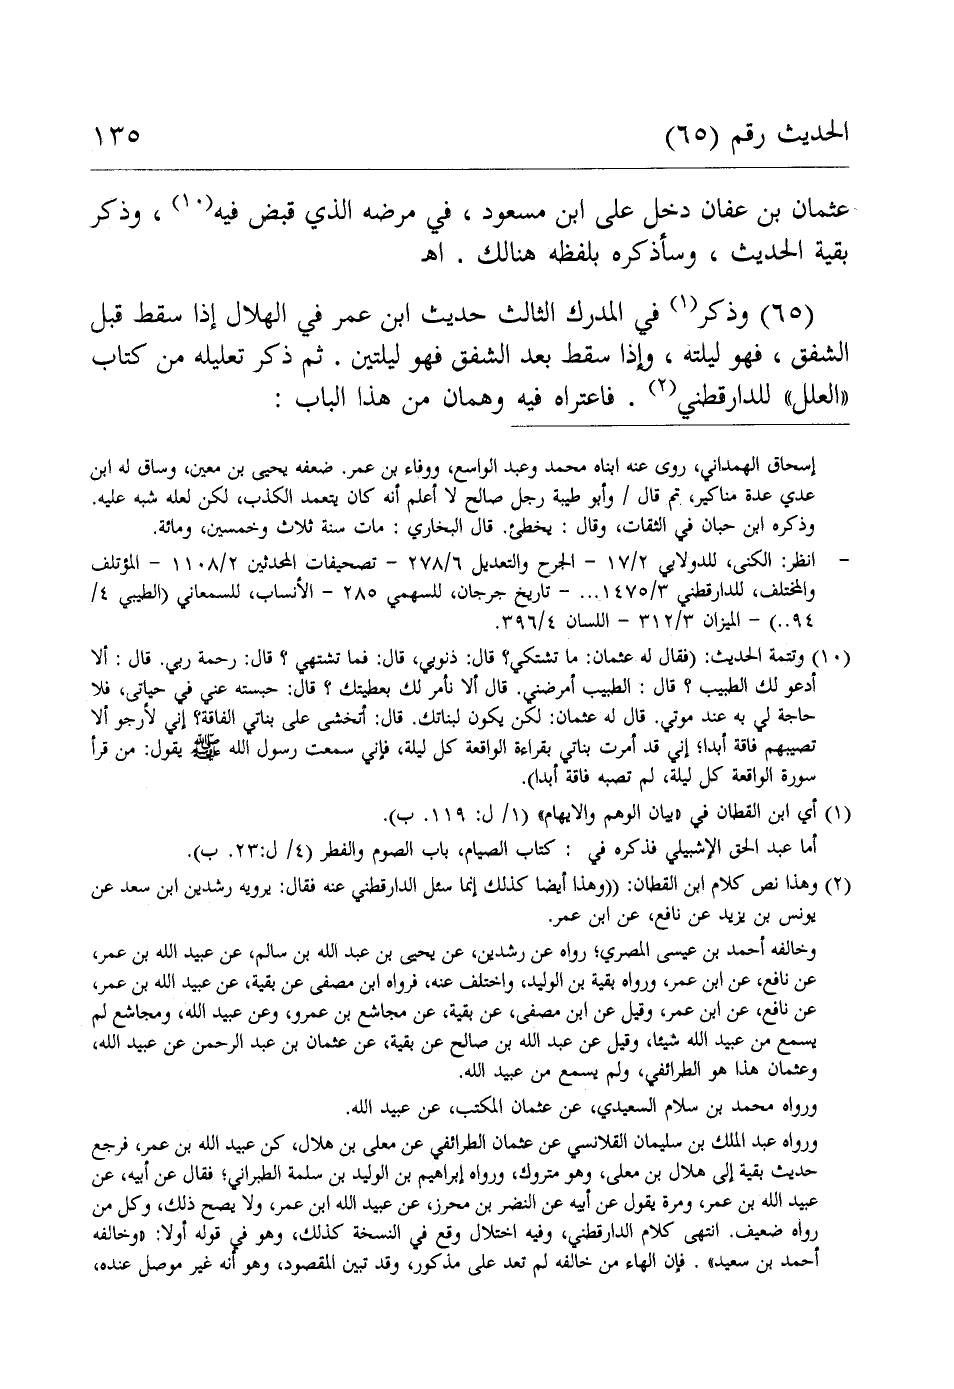 الحديث رقم (٦٥) ١٣٥
عثمان بن عفان دخل على ابن مسعود ، في مرضه الذي قبض فيه(١٠) ، وذكر
بقية الحديث ، وسأذكره بلفظه هنالك . اهـ
(٦٥) وذكر(١) في المدرك الثالث حديث ابن عمر في الهلال إذا سقط قبل
الشفق ، فهو ليلته ، وإذا سقط بعد الشفق فهو ليلتين . ثم ذكر تعليله من كتاب
«العلل» للدارقطني(٢) . فاعتراه فيه وهمان من هذا الباب :
إسحاق الهمداني، روى عنه ابناه محمد وعبد الواسع، ووفاء بن عمر. ضعفه يحيى بن معين، وساق له ابن
عدي عدة مناكير، تم قال / وأبو طيبة رجل صالح لا أعلم أنه كان يتعمد الكذب، لكن لعله شبه عليه.
وذكره ابن حبان في الثقات، وقال : يخطئ. قال البخاري : مات سنة ثلاث وخمسين، ومائة.
- انظر: الكنى، للدولابي ١٧/٢ - الجرح والتعديل ٢٧٨/٦ - تصحيفات المحدثين ١١٠٨/٢ - المؤتلف
والمختلف، للدارقطني ١٤٧٥/٣... - تاريخ جرجان، للسهمي ٢٨٥ - الأنساب، للسمعاني (الطيبي ٤/
٩٤..) - الميزان ٣١٢/٣ - اللسان ٣٩٦/٤.
(١٠) وتتمة الحديث: (فقال له عثمان: ما تشتكي؟ قال: ذنوبي، قال: فما تشتهي ؟ قال: رحمة ربي. قال : ألا
أدعو لك الطبيب ؟ قال : الطبيب أمرضني. قال ألا نأمر لك بعطيتك ؟ قال: حبسته عني في حياتى، فلا
حاجة لي به عند موتي. قال له عثمان: لكن يكون لبناتك. قال: أتخشى على بناتي الفاقة؟ إني لأرجو ألا
تصيبهم فاقة أبدا؛ إني قد أمرت بناتي بقراءة الواقعة كل ليلة، فإني سمعت رسول الله ﷺ يقول: من قرأ
سورة الواقعة كل ليلة، لم تصبه فاقة أبدا).
(١) أي ابن القطان في «بيان الوهم والايهام» (١/ ل: ١١٩. ب).
أما عبد الحق الإشبيلي فذكره في : كتاب الصيام، باب الصوم والفطر (٤/ ل:٢٣. ب).
(٢) وهذا نص كلام ابن القطان: ((وهذا أيضا كذلك إنما سئل الدارقطني عنه فقال: يرويه رشدين ابن سعد عن
يونس بن يزيد عن نافع، عن ابن عمر.
وخالفه أحمد بن عيسى المصري؛ رواه عن رشدين، عن يحيى بن عبد الله بن سالم، عن عبيد الله بن عمر،
عن نافع، عن ابن عمر، ورواه بقية بن الوليد، واختلف عنه، فرواه ابن مصفى عن بقية، عن عبيد الله بن عمر،
عن نافع، عن ابن عمر، وقيل عن ابن مصفى، عن بقية، عن مجاشع بن عمرو، وعن عبيد الله، ومجاشع لم
يسمع من عبيد الله شيئا، وقيل عن عبد الله بن صالح عن بقية، عن عثمان بن عبد الرحمن عن عبيد الله،
وعثمان هذا هو الطرائفي، ولم يسمع من عبيد الله.
ورواه محمد بن سلام السعيدي، عن عثمان المكتب، عن عبيد الله.
ورواه عبد الملك بن سليمان القلانسي عن عثمان الطرائفي عن معلى بن هلال، كن عبيد الله بن عمر، فرجع
حديث بقية إلى هلال بن معلى، وهو متروك، ورواه إبراهيم بن الوليد بن سلمة الطبراني؛ فقال عن أبيه، عن
عبيد الله بن عمر، ومرة يقول عن أبيه عن النضر بن محرز، عن عبيد الله ابن عمر، ولا يصح ذلك، وكل من
رواه ضعيف. انتهى كلام الدارقطني، وفيه اختلال وقع في النسخة كذلك، وهو في قوله أولا: «وخالفه
أحمد بن سعيد» . فإن الهاء من خالفه لم تعد على مذكور، وقد تبين المقصود، وهو أنه غير موصل عنده،